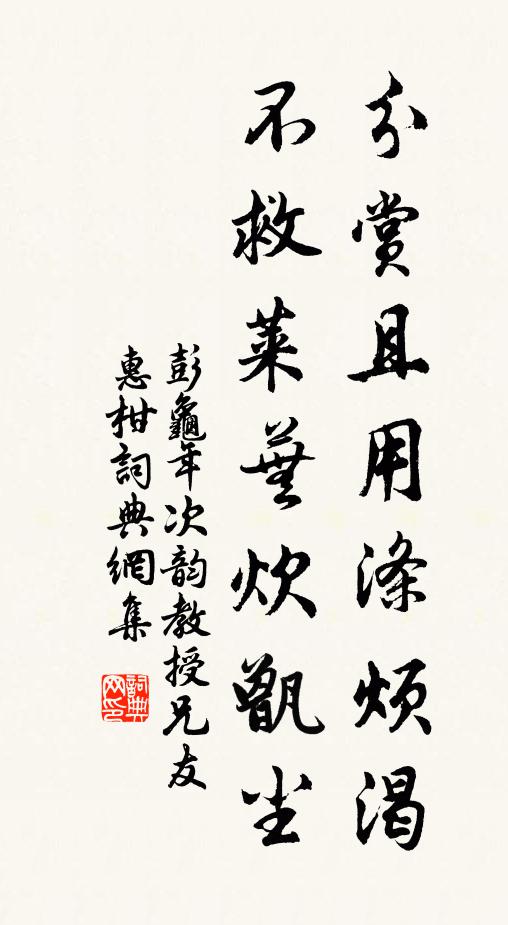 分賞且用滌煩渴
不救菜蕪炊甑尘
彭龜年次韵教授兄友
惠柑詞典網集
詞典
网印